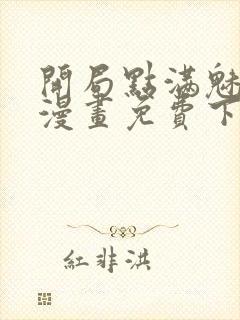 開局點滿魅
漫畫免費下
紅非洪